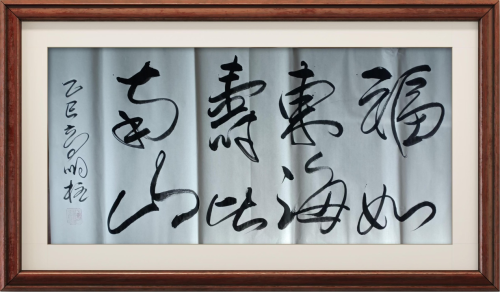 福如
東海
壽比
南山
乙巳